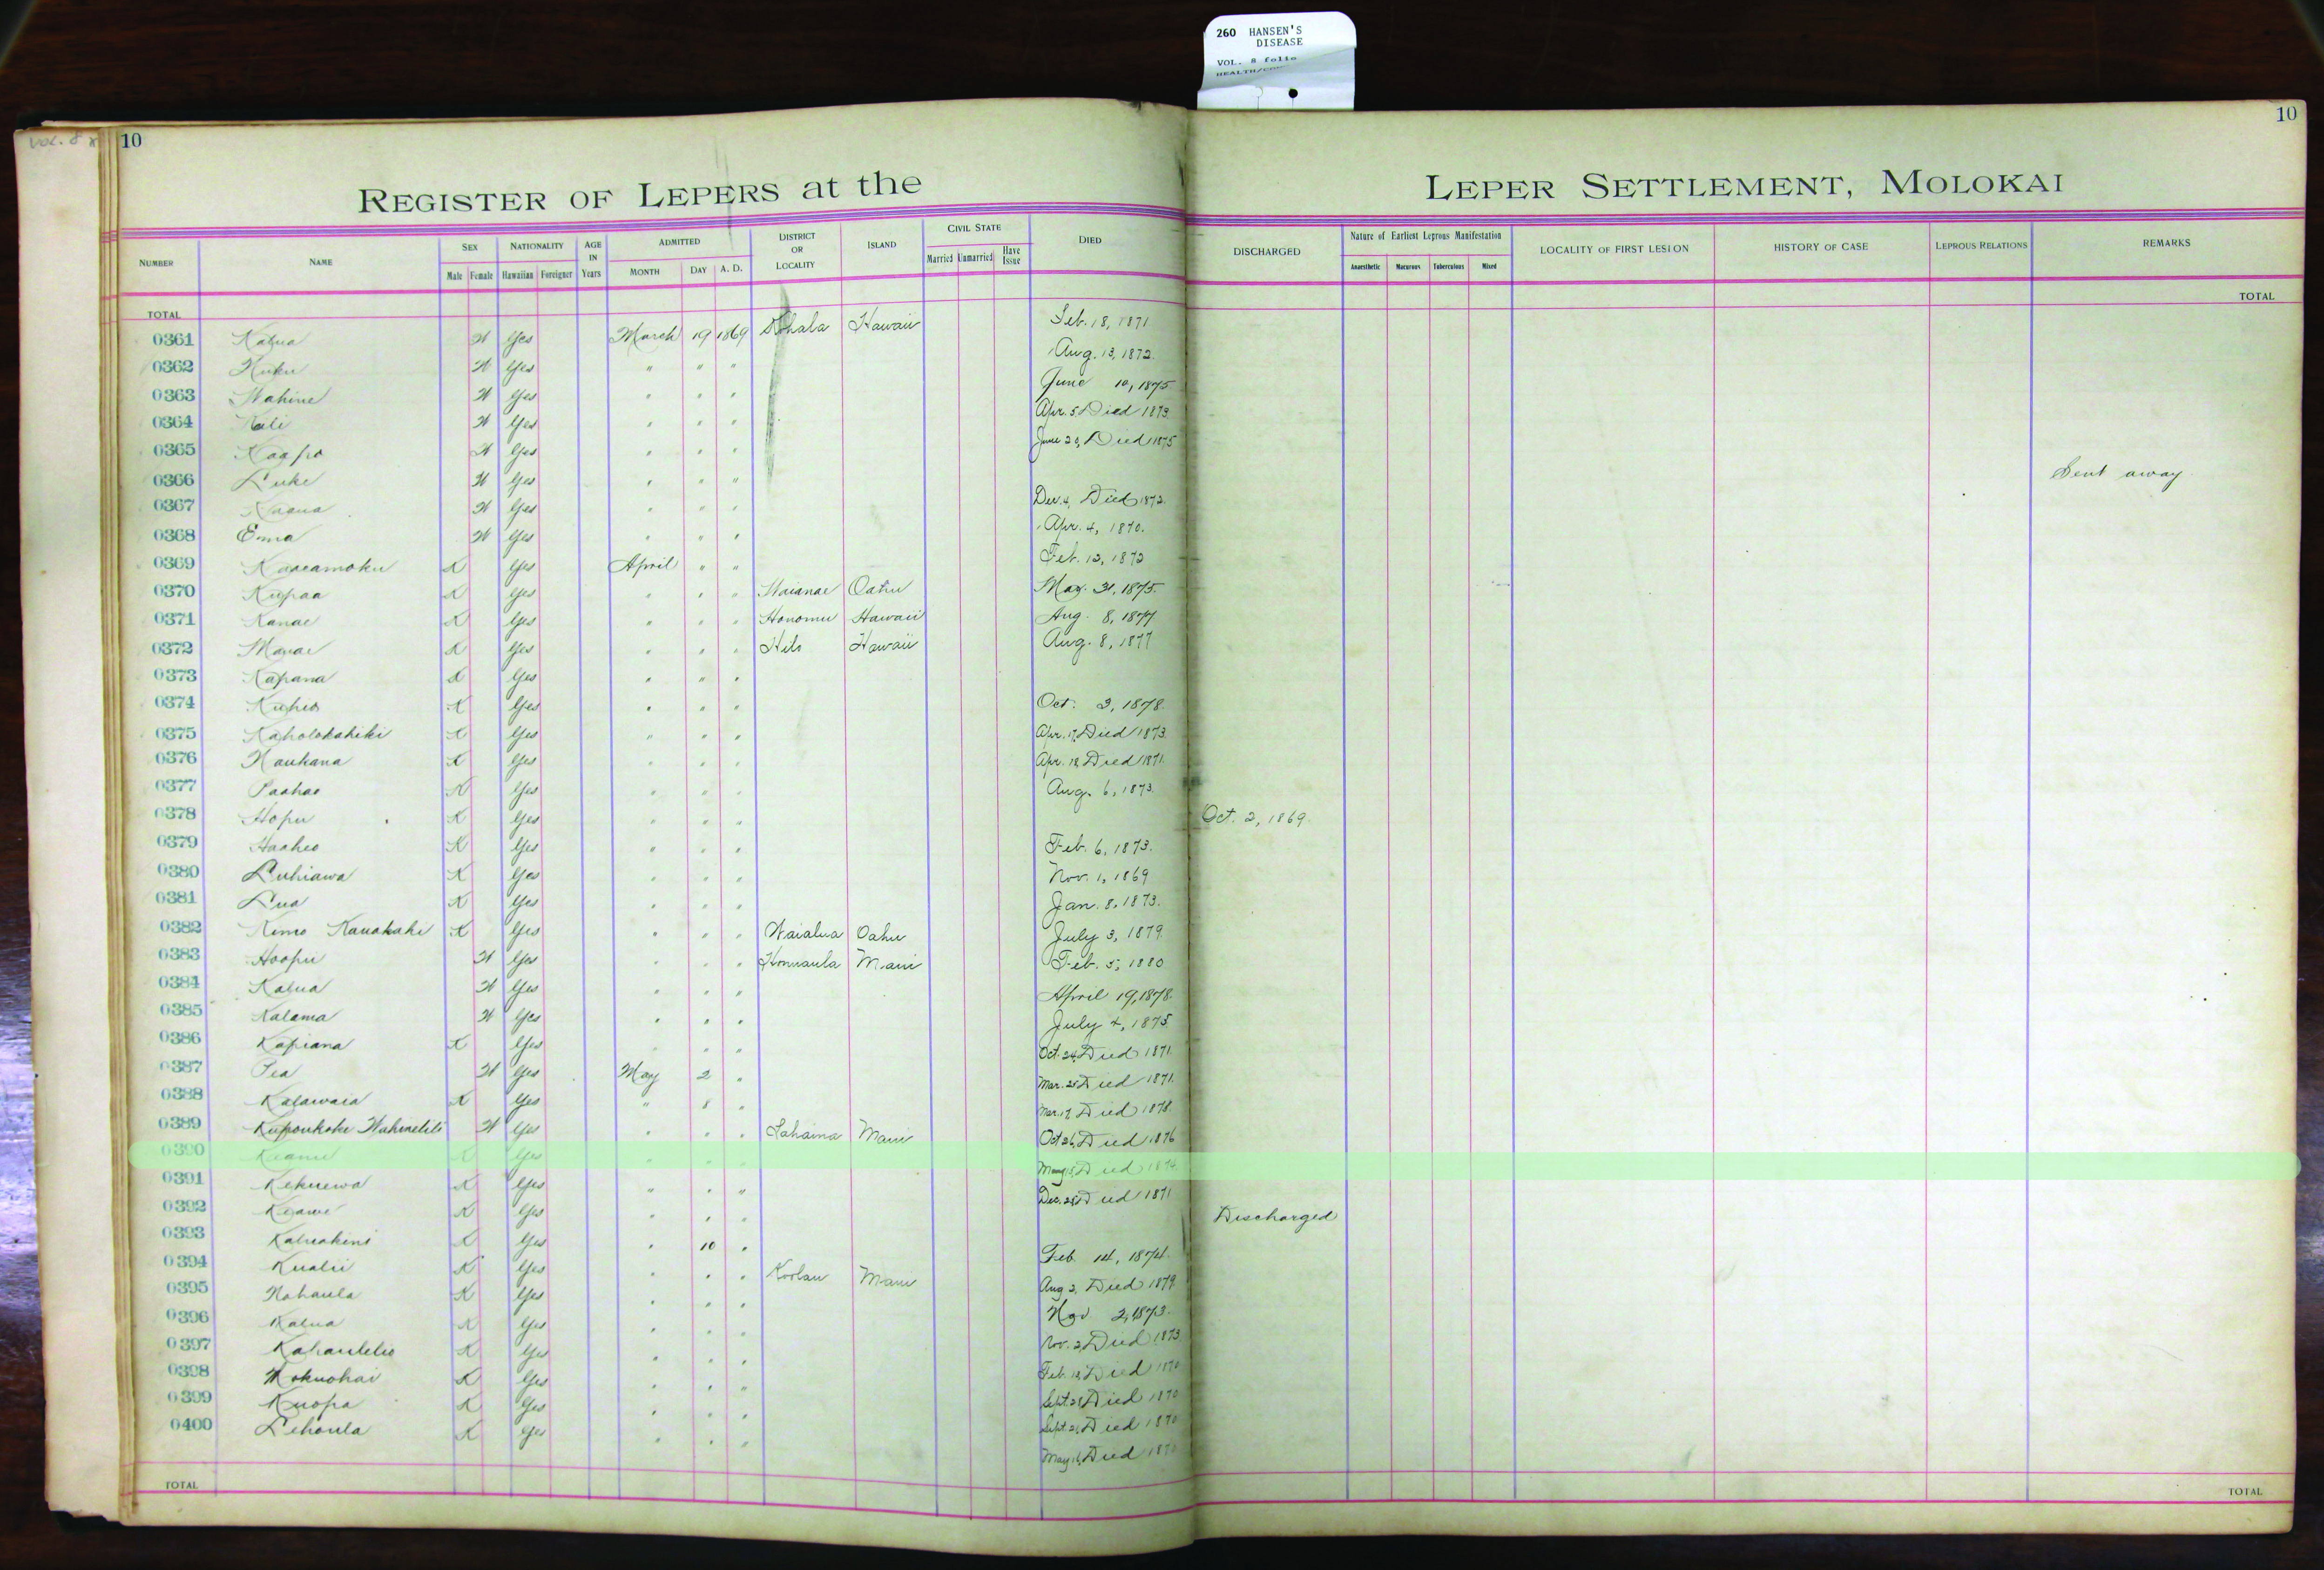 260 HANSEN'S
DISEASE
VOL. 8 folio
VOL. 8
10
10
REGISTER OF LEPERS at the LEPER SETTLEMENT, MOLOKAI
NUMBER NAME SEX NATIONALITY AGE IN Years ADMITTED DISTRICT OR LOCALITY ISLAND CIVIL STATE DIED DISCHARGED Nature of Earliest Leprous Manifestation LOCALITY OF FIRST LESION HISTORY OF CASE LEPROUS RELATIONS REMARKS
Male Female Hawaiian Foreigner MONTH DAY A. D. Married Unmarried Have Issue Anaesthetic Macurous Tuberculous Mixed
TOTAL TOTAL
0361 Kalua W Yes March 19 1869 Kohala Hawaii Feb. 18, 1871
0362 Kuku W Yes " " " Aug. 13, 1872.
0363 Wahine W Yes " " " June 10, 1875
0364 Kali W Yes " " " Apr. 5 Died 1873.
0365 Kaapo W Yes " " " June 29, Died 1875
0366 Luke W Yes " " " Sent away
0367 W Yes " " " Dec. 4, Died 1872.
0368 Emma W Yes " " " Apr. 4, 1870.
0369 Kaaeamoku K Yes April " " Feb. 12, 1872
0370 Kupaa K Yes " " " Waianae Oahu May. 31, 1875.
0371 Kanae K Yes " " " Honomu Hawaii Aug. 8, 1877
0372 K Yes " " " Hilo Hawaii Aug. 8, 1877
0373 Kapana K Yes " " "
0374 Kuheo K Yes " " " Oct. 3, 1878.
0375 Kaholokahiki K Yes " " " Apr. 17, Died 1873.
0376 Naukana K Yes " " " Apr. 18 Died 1871.
0377 Paahao K Yes " " " Aug. 6, 1873.
0378 Hopu K Yes " " " Oct. 2, 1869.
0379 Haaheo K Yes " " " Feb. 6, 1873.
0380 Luhiawa K Yes " " " Nov. 1, 1869
0381 Lua K Yes " " " Jan. 8, 1873.
0382 Kimo Kauakahi K Yes " " " Waialua Oahu July 3, 1879.
0383 Hoopii W Yes " " " Honuaula Maui Feb. 5, 1880
0384 Kalua W Yes " " " April 19, 1878.
0385 Kalama W Yes " " " July 4, 1875
0386 Kapiana K Yes " " " Oct. 24, Died 1871.
0387 Pea W Yes May 2 " Mar. 25 Died 1871.
0388 Kalawaia K Yes " 8 " Mar. 17, Died 1878.
0389 Kupoukoke Wahinelili W Yes " " " Lahaina Maui Oct 26, Died 1876
0390 Keanu K Yes " " " May 15, Died 1874.
0391 Kekuewa K Yes " " " Dec. 28, Died 1871
0392 Keawe K Yes " " " Discharged
0393 Kaluakini K Yes " 10 " Feb. 14, 1874.
0394 Kualii K Yes " " " Koolau Maui Aug 2, Died 1879.
0395 Nohaula K Yes " " " Nov 2, 1873.
0396 Kalua K Yes " " " Nov. 2, Died 1873
0397 Kahaulelio K Yes " " " Feb. 18, Died 1870
0398 Mokuohai K Yes " " " Sept. 28, Died 1870
0399 Kuopa K Yes " " " Sept. 21, Died 1870
0400 Lehoula K Yes " " " May 16, Died 1870
TOTAL TOTAL